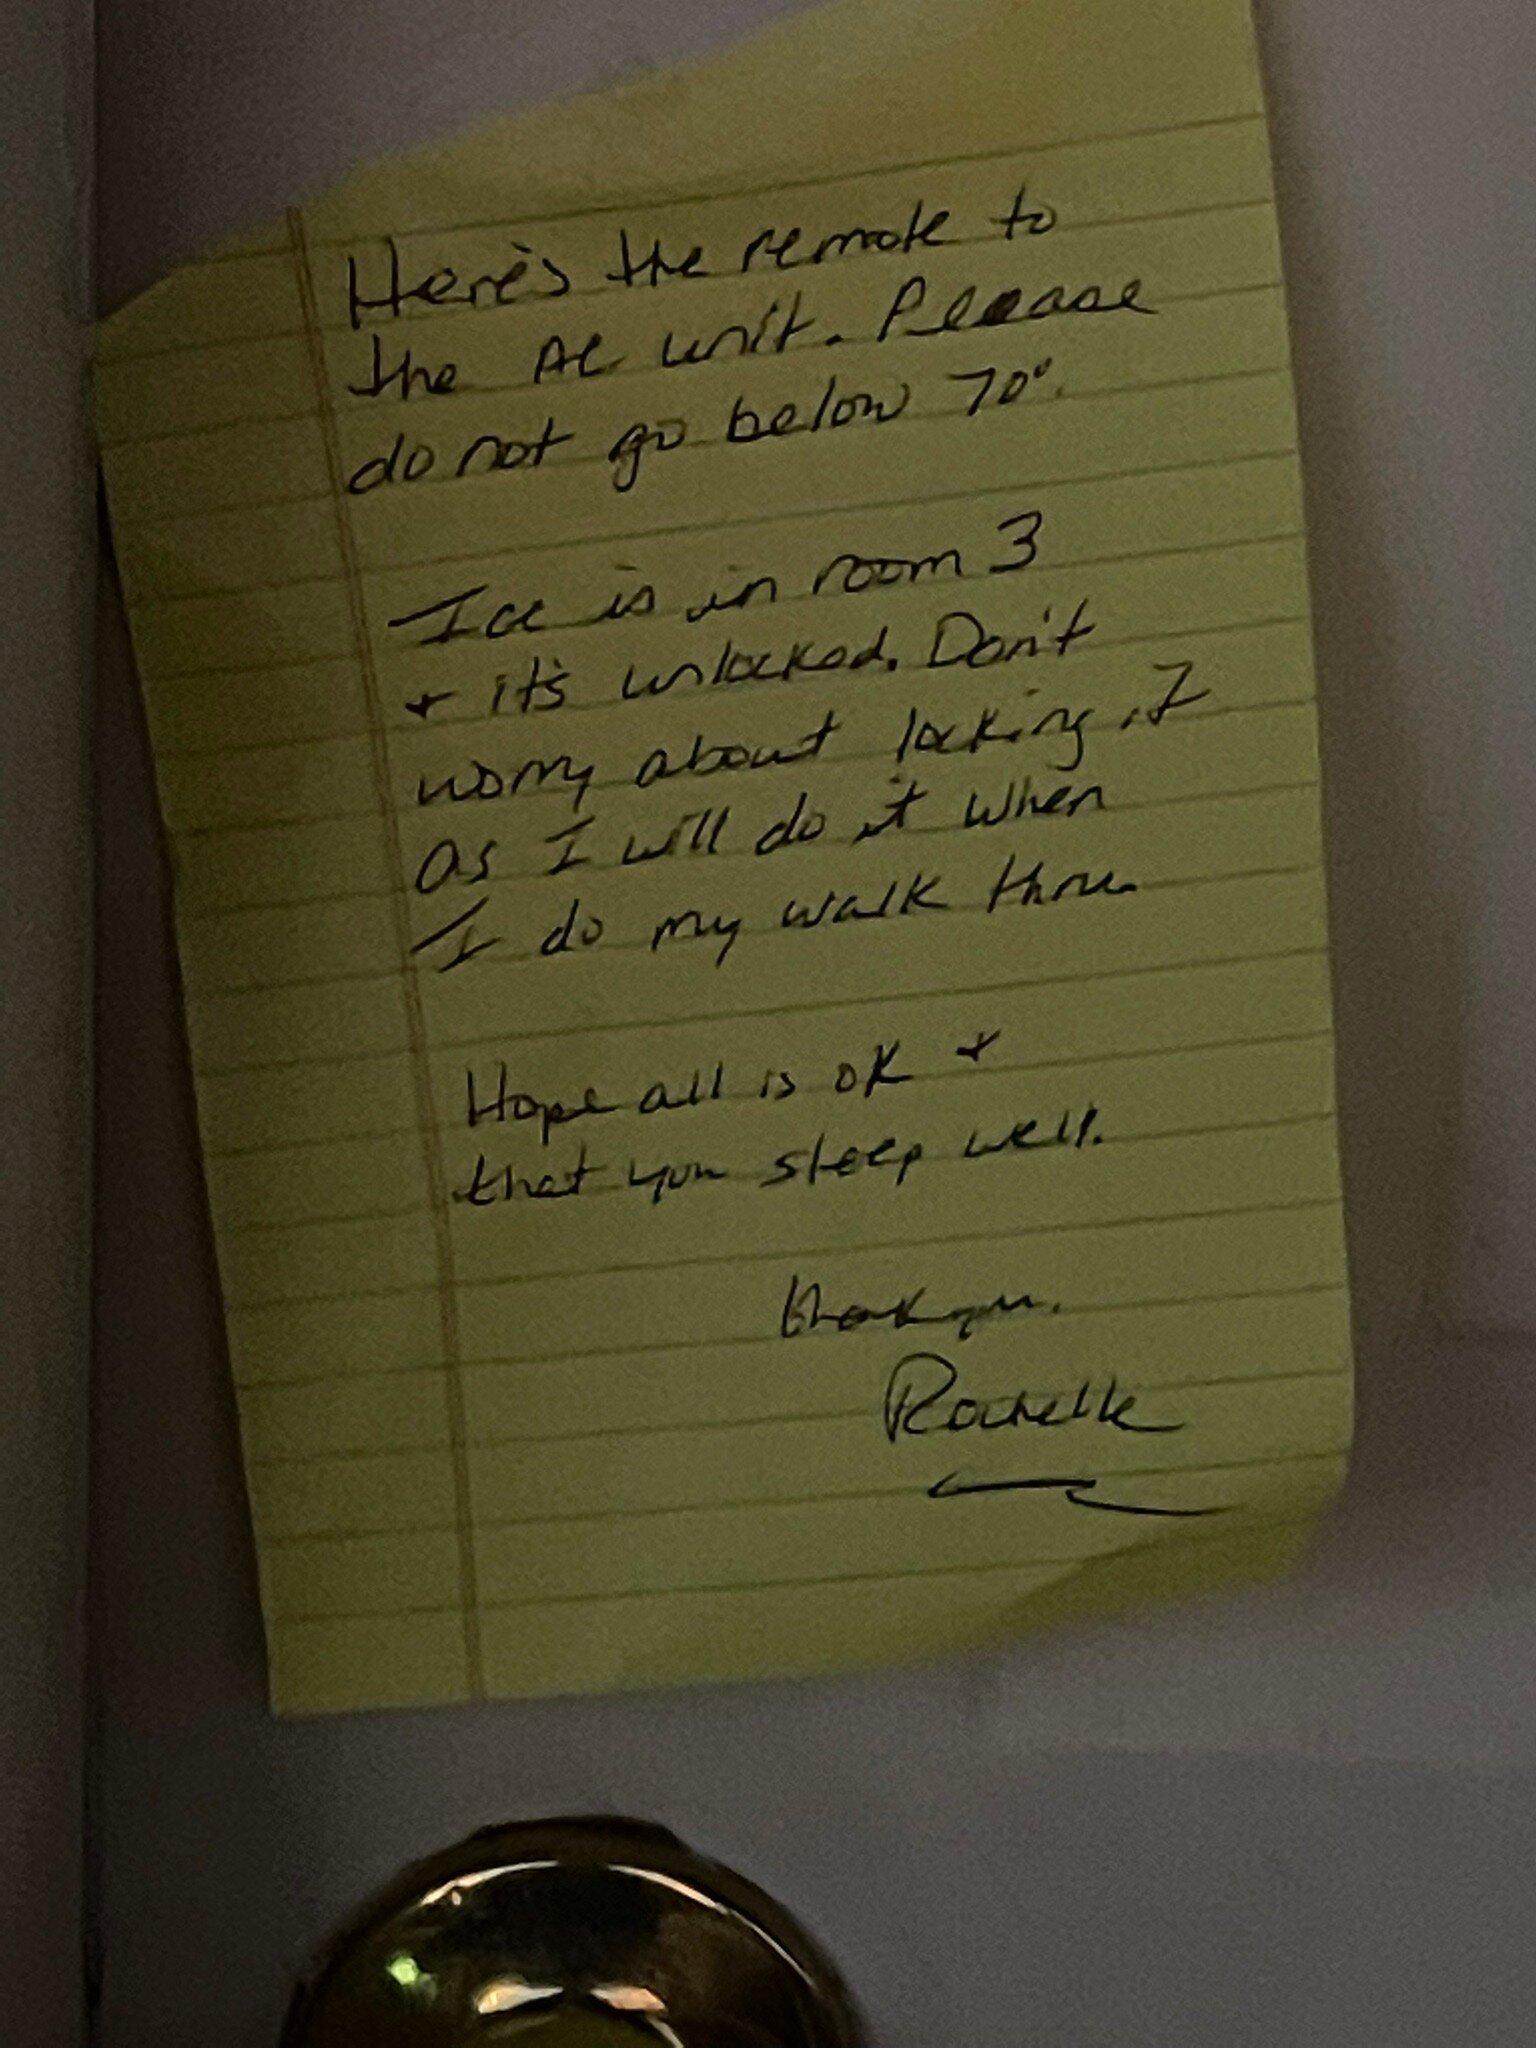 Here's the remote to
the AC unit. Please
do not go below 70°.
Ice is in room 3
+ it's unlocked. Don't
worry about locking it
as I will do it when
I do my walk thru.
Hope all is OK +
that you sleep well.
thank you.
Rochelle